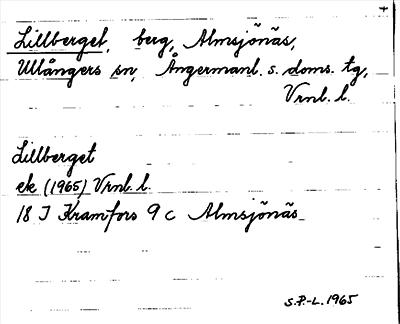 Lillberget, berg, Almsjönäs,
Ullångers sn, Ångermanl. s. doms. tg,
Vrnl. l.
Lillberget
ek (1965) Vrnl. l.
18 J Kramfors 9 c Almsjönäs
S.P.-L. 1965